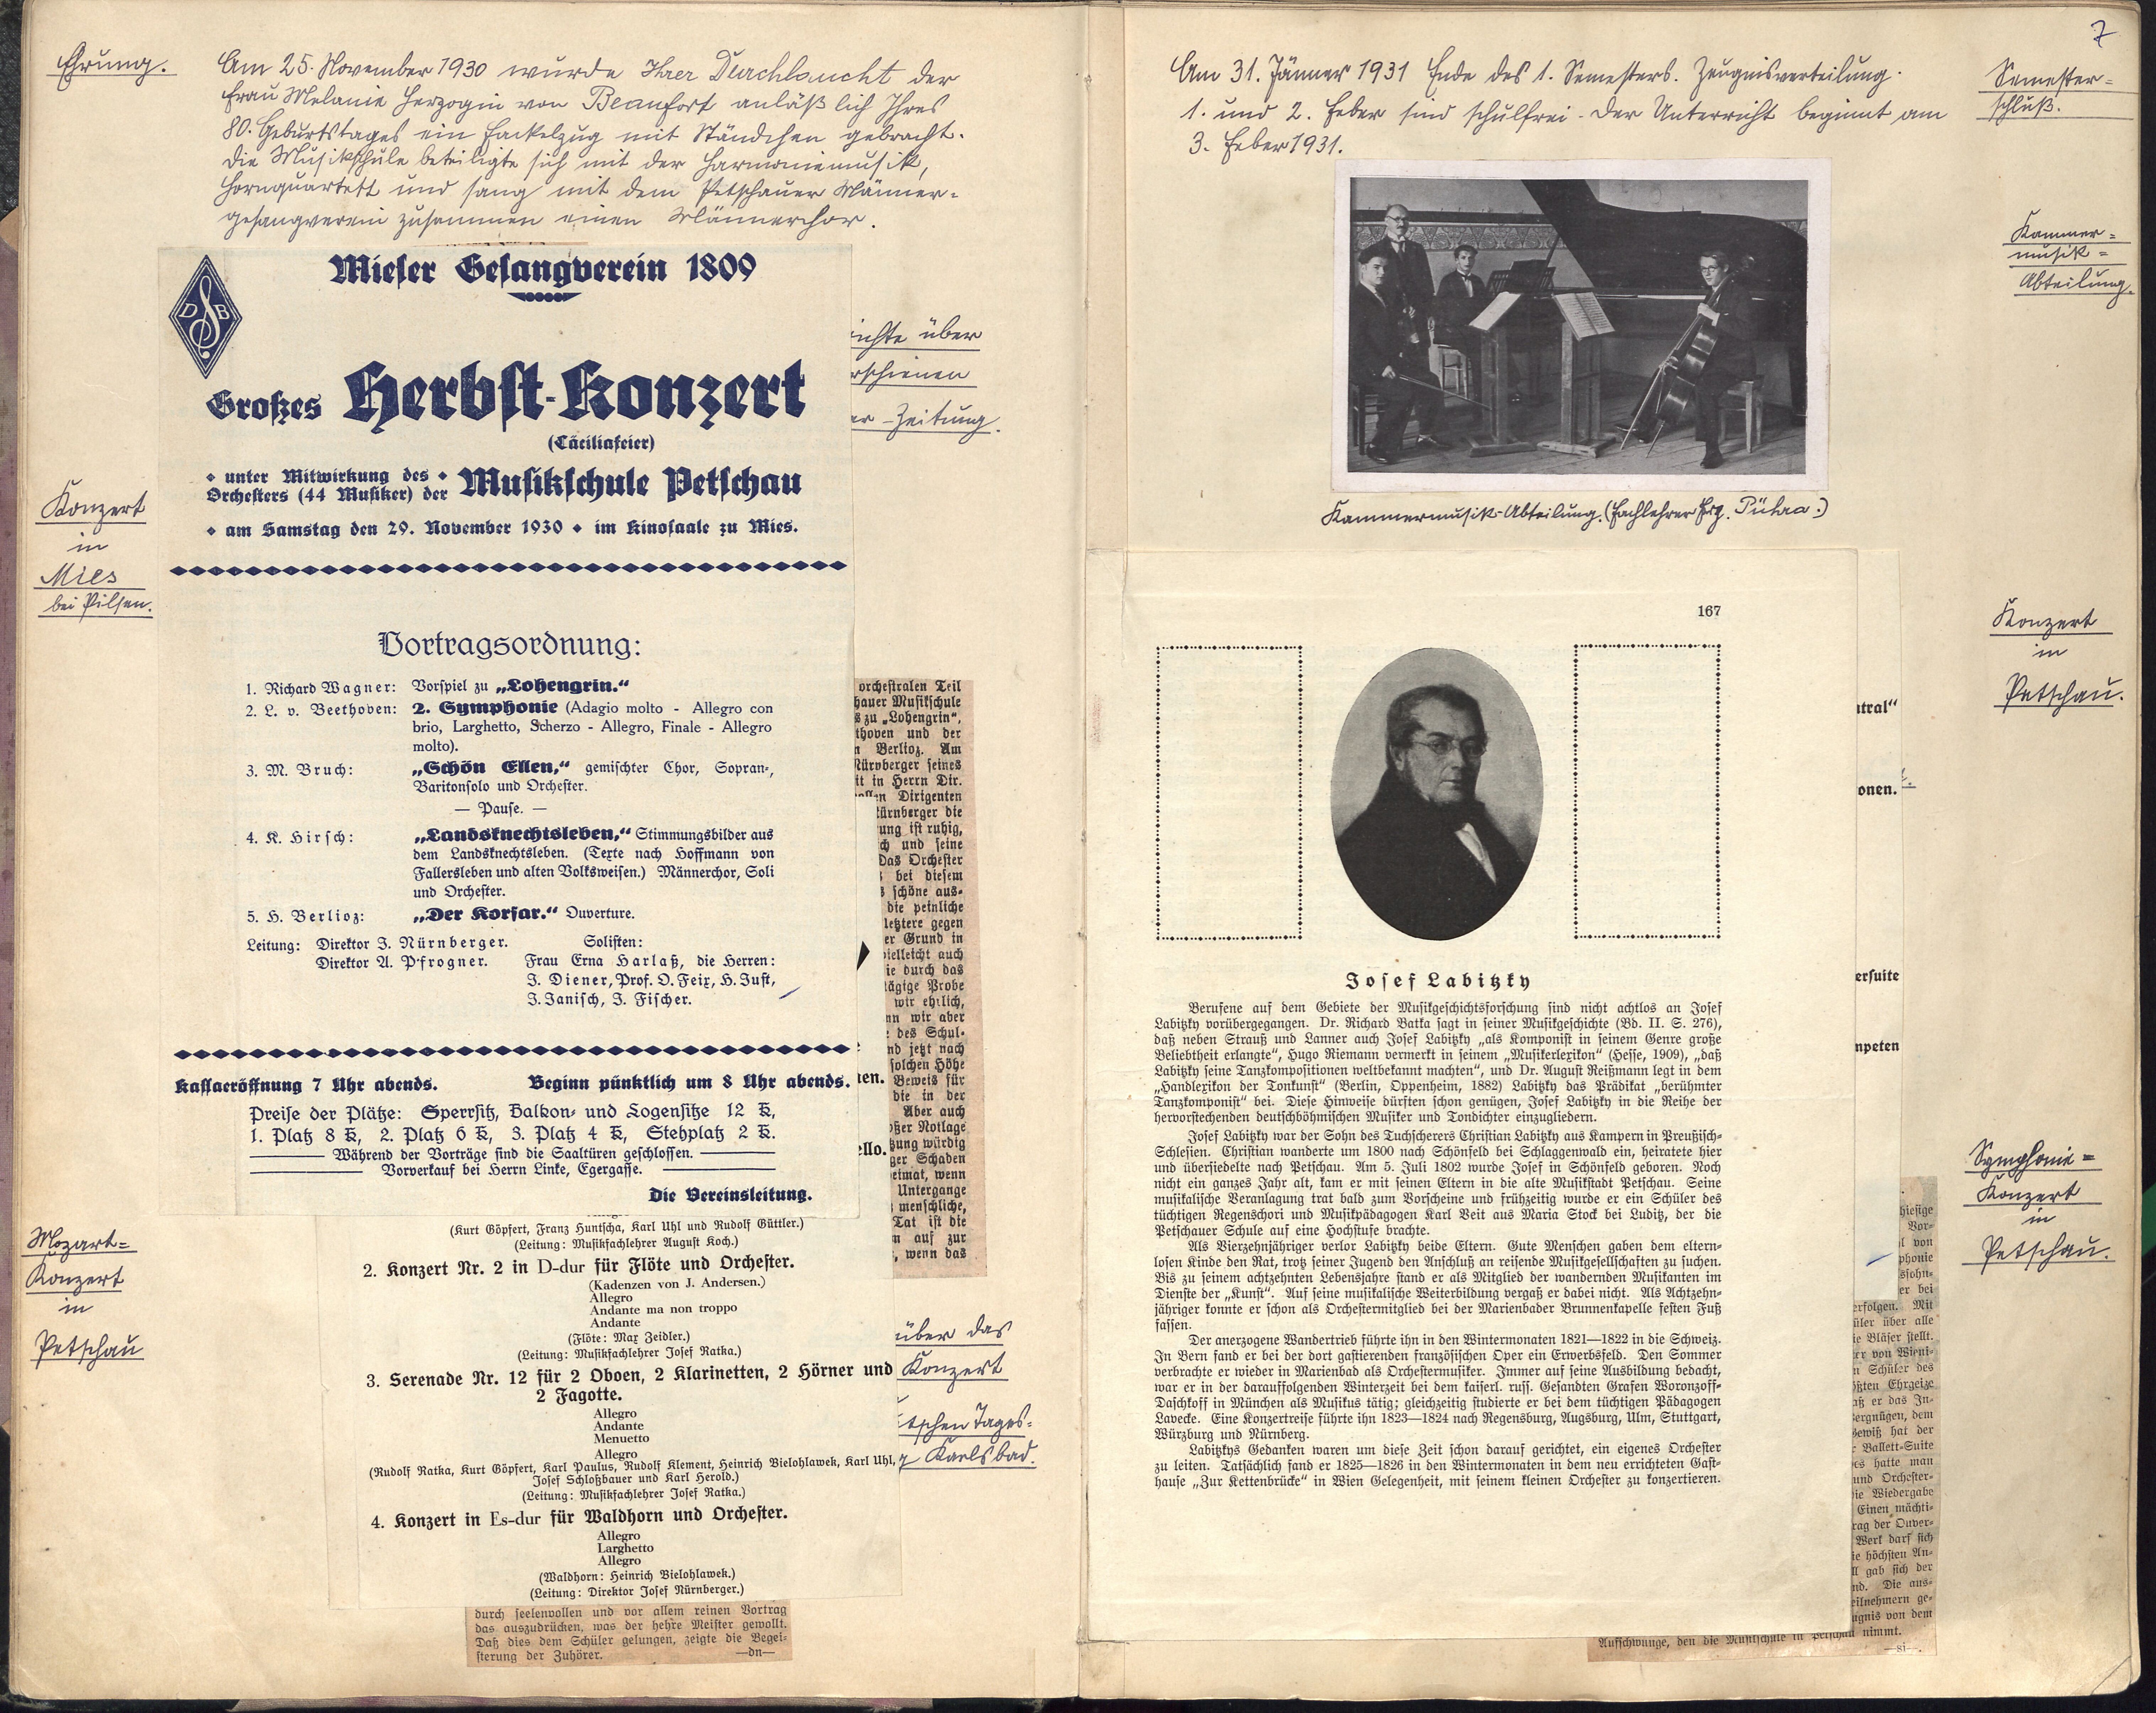 Ehrung.
Am 25. November 1930 wurde Ihrer Durchlaucht der
Frau Melanie Herzogin von Beaufort anläßlich Ihres
80. Geburtstages ein Fackelzug mit Ständchen gebracht.
Die Musikschule beteiligte sich mit der Harmoniemusik,
Hornquartett und sang mit dem Petschauer Männer-
gesangverein zusammen einen Männerchor.
Mieser Gesangverein 1809
D S B
Großes Herbst-Konzert
(Cäciliafeier)
unter Mitwirkung des
Orchesters (44 Musiker) der Musikschule Petschau
am Samstag den 29. November 1930 im Kinosaale zu Mies.
Konzert
in
Mies
bei Pilsen.
Vortragsordnung:
1. Richard Wagner: Vorspiel zu „Lohengrin.“
2. L. v. Beethoven: 2. Symphonie (Adagio molto - Allegro con
brio, Larghetto, Scherzo - Allegro, Finale - Allegro
molto).
3. M. Bruch: „Schön Ellen,“ gemischter Chor, Sopran-,
Baritonsolo und Orchester.
— Pause. —
4. K. Hirsch: „Landsknechtsleben,“ Stimmungsbilder aus
dem Landsknechtsleben. (Texte nach Hoffmann von
Fallersleben und alten Volksweisen.) Männerchor, Soli
und Orchester.
5. H. Berlioz: „Der Korsar.“ Ouverture.
Leitung: Direktor J. Nürnberger.
Direktor A. Pfrogner.
Solisten:
Frau Erna Harlaß, die Herren:
J. Diener, Prof. O. Feix, H. Just,
J. Janisch, J. Fischer.
Kassaeröffnung 7 Uhr abends. Beginn pünktlich um 8 Uhr abends.
Preise der Plätze: Sperrsitz, Balkon- und Logensitze 12 K,
1. Platz 8 K, 2. Platz 6 K, 3. Platz 4 K, Stehplatz 2 K.
Während der Vorträge sind die Saaltüren geschlossen.
Vorverkauf bei Herrn Linke, Egergasse.
Die Vereinsleitung.
ichte über
rschienen
er-Zeitung.
orchestralen Teil
hauer Musikschule
s zu „Lohengrin“,
thoven und der
n Berlioz. Am
Nürnberger seines
it in Herrn Dir.
ollen Dirigenten
türnberger die
ung ist ruhig,
ch und seine
Das Orchester
bei diesem
schöne aus-
die peinliche
letztere gegen
er Grund in
vielleicht auch
ie durch das
tägige Probe
wir ehrlich,
nn wir aber
des Schul-
nd jetzt nach
solchen Höhe
Beweis für
die in der
Aber auch
oßer Notlage
tzung würdig
ger Schaden
eimat, wenn
Untergange
menschliche,
Tat ist die
n auf zur
, wenn das
ien.
ello.
Mozart-
Konzert
in
Petschau
(Kurt Göpfert, Franz Huntscha, Karl Uhl und Rudolf Güttler.)
(Leitung: Musikfachlehrer August Koch.)
2. Konzert Nr. 2 in D-dur für Flöte und Orchester.
(Kadenzen von J. Andersen.)
Allegro
Andante ma non troppo
Andante
(Flöte: Max Zeidler.)
(Leitung: Musikfachlehrer Josef Ratka.)
3. Serenade Nr. 12 für 2 Oboen, 2 Klarinetten, 2 Hörner und
2 Fagotte.
Allegro
Andante
Menuetto
Allegro
(Rudolf Ratka, Kurt Göpfert, Karl Paulus, Rudolf Klement, Heinrich Bielohlawek, Karl Uhl,
Josef Schloßbauer und Karl Herold.)
(Leitung: Musikfachlehrer Josef Ratka.)
4. Konzert in Es-dur für Waldhorn und Orchester.
Allegro
Larghetto
Allegro
(Waldhorn: Heinrich Bielohlawek.)
(Leitung: Direktor Josef Nürnberger.)
über das
Konzert
tschen Tages-
Karlsbad.
durch seelenvollen und vor allem reinen Vortrag
das auszudrücken, was der hehre Meister gewollt.
Daß dies dem Schüler gelungen, zeigte die Begei-
sterung der Zuhörer. —dn—
7
Am 31. Jänner 1931 Ende des 1. Semesters. Zeugnisverteilung.
1. und 2. Feber sind schulfrei. Der Unterricht beginnt am
3. Feber 1931.
Semester-
schluß.
Kammer-
musik-
Abteilung.
Kammermusik-Abteilung. (Fachlehrer Frz. Pühra.)
Konzert
in
Petschau.
Symphonie-
Konzert
in
Petschau.
167
Josef Labitzky
Berufene auf dem Gebiete der Musikgeschichtsforschung sind nicht achtlos an Josef
Labitzky vorübergegangen. Dr. Richard Batka sagt in seiner Musikgeschichte (Bd. II. S. 276),
daß neben Strauß und Lanner auch Josef Labitzky „als Komponist in seinem Genre große
Beliebtheit erlangte“, Hugo Riemann vermerkt in seinem „Musikerlexikon“ (Hesse, 1909), „daß
Labitzky seine Tanzkompositionen weltbekannt machten“, und Dr. August Reißmann legt in dem
„Handlexikon der Tonkunst“ (Berlin, Oppenheim, 1882) Labitzky das Prädikat „berühmter
Tanzkomponist“ bei. Diese Hinweise dürften schon genügen, Josef Labitzky in die Reihe der
hervorstechenden deutschböhmischen Musiker und Tondichter einzugliedern.
Josef Labitzky war der Sohn des Tuchscherers Christian Labitzky aus Kampern in Preußisch-
Schlesien. Christian wanderte um 1800 nach Schönfeld bei Schlaggenwald ein, heiratete hier
und übersiedelte nach Petschau. Am 5. Juli 1802 wurde Josef in Schönfeld geboren. Noch
nicht ein ganzes Jahr alt, kam er mit seinen Eltern in die alte Musikstadt Petschau. Seine
musikalische Veranlagung trat bald zum Vorscheine und frühzeitig wurde er ein Schüler des
tüchtigen Regenschori und Musikpädagogen Karl Veit aus Maria Stock bei Luditz, der die
Petschauer Schule auf eine Hochstufe brachte.
Als Vierzehnjähriger verlor Labitzky beide Eltern. Gute Menschen gaben dem eltern-
losen Kinde den Rat, trotz seiner Jugend den Anschluß an reisende Musikgesellschaften zu suchen.
Bis zu seinem achtzehnten Lebensjahre stand er als Mitglied der wandernden Musikanten im
Dienste der „Kunst“. Auf seine musikalische Weiterbildung vergaß er dabei nicht. Als Achtzehn-
jähriger konnte er schon als Orchestermitglied bei der Marienbader Brunnenkapelle festen Fuß
fassen.
Der anerzogene Wandertrieb führte ihn in den Wintermonaten 1821—1822 in die Schweiz.
In Bern fand er bei der dort gastierenden französischen Oper ein Erwerbsfeld. Den Sommer
verbrachte er wieder in Marienbad als Orchestermusiker. Immer auf seine Ausbildung bedacht,
war er in der darauffolgenden Winterzeit bei dem kaiserl. russ. Gesandten Grafen Woronzoff-
Daschkoff in München als Musikus tätig; gleichzeitig studierte er bei dem tüchtigen Pädagogen
Lavecke. Eine Konzertreise führte ihn 1823—1824 nach Regensburg, Augsburg, Ulm, Stuttgart,
Würzburg und Nürnberg.
Labitzkys Gedanken waren um diese Zeit schon darauf gerichtet, ein eigenes Orchester
zu leiten. Tatsächlich fand er 1825—1826 in den Wintermonaten in dem neu errichteten Gast-
hause „Zur Kettenbrücke“ in Wien Gelegenheit, mit seinem kleinen Orchester zu konzertieren.
ntral“
onen.
ersuite
npeten
hiesige
Vor-
l von
phonie
ssohn-
er bei
erfolgen. Mit
üler über alle
ie Bläser stellt.
er von Wieni-
n Schüler des
ößten Ehrgeize
aß er das In-
ergnügen, dem
Gewiß hat der
r Ballett-Suite
es hatte man
und Orchester-
ie Wiedergabe
Einen mächti-
rag der Ouver-
Werk darf sich
ie höchsten An-
ll gab sich der
nd. Die aus-
eilnehmern ge-
ugnis von dem
Aufschwunge, den die Musikschule in Petschau nimmt.
—si—.